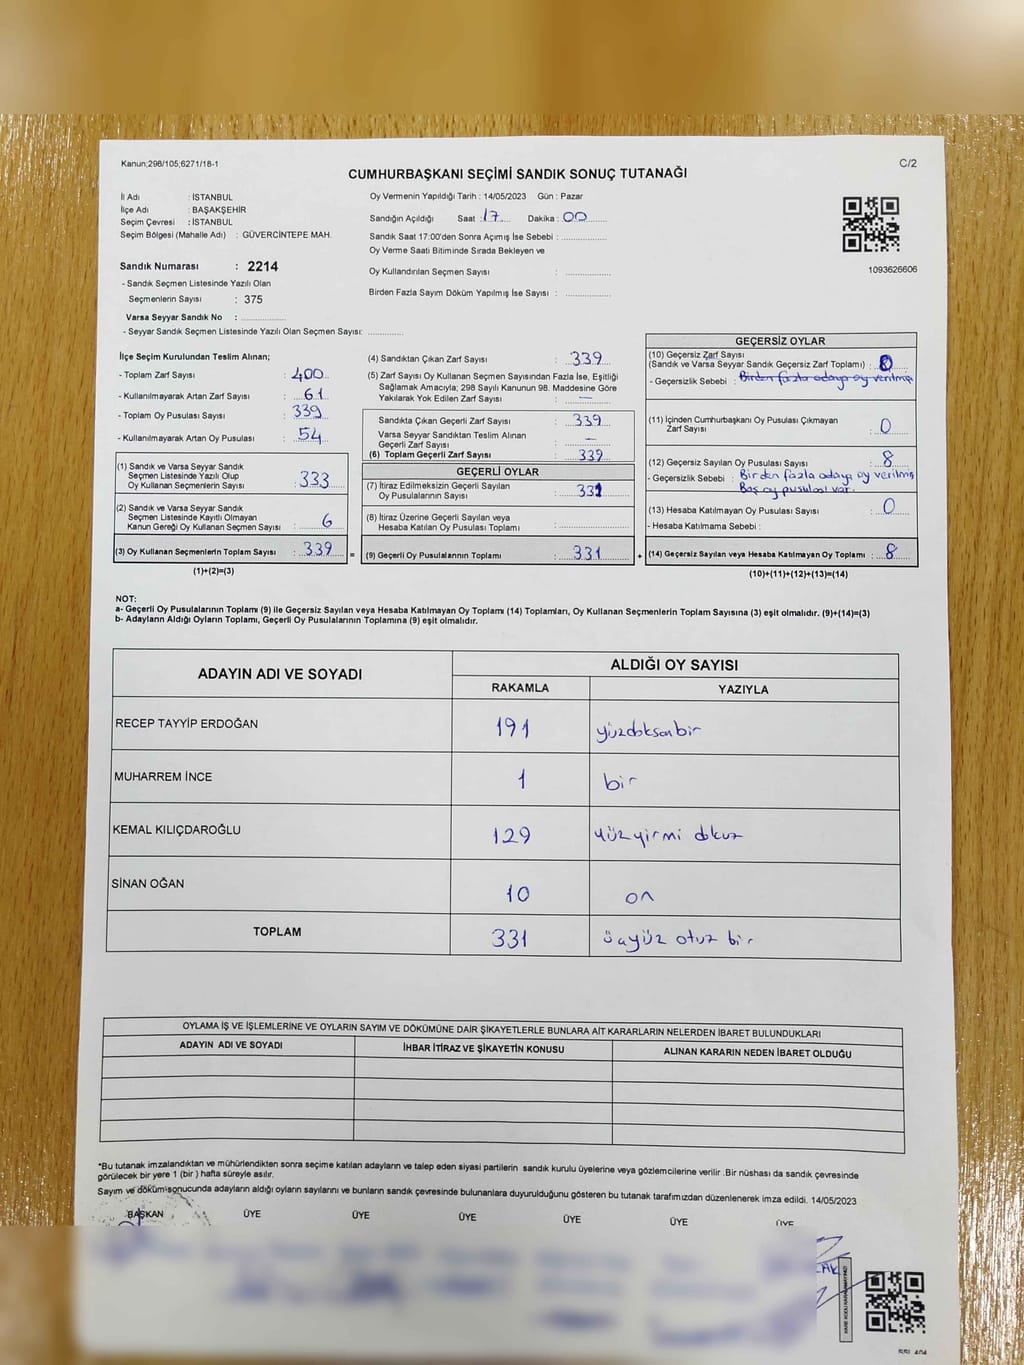 Kanun;298/105;6271/18-1
C/2
CUMHURBAŞKANI SEÇİMİ SANDIK SONUÇ TUTANAĞI
İl Adı : İSTANBUL
İlçe Adı : BAŞAKŞEHİR
Seçim Çevresi : İSTANBUL
Seçim Bölgesi (Mahalle Adı) : GÜVERCİNTEPE MAH.
Oy Vermenin Yapıldığı Tarih : 14/05/2023 Gün : Pazar
Sandığın Açıldığı Saat : 17 Dakika : 00
Sandık Saat 17:00'den Sonra Açımış İse Sebebi :
Oy Verme Saati Bitiminde Sırada Bekleyen ve
Oy Kullandırılan Seçmen Sayısı :
Birden Fazla Sayım Döküm Yapılmış İse Sayısı :
1093626606
Sandık Numarası : 2214
- Sandık Seçmen Listesinde Yazılı Olan
Seçmenlerin Sayısı : 375
Varsa Seyyar Sandık No :
- Seyyar Sandık Seçmen Listesinde Yazılı Olan Seçmen Sayısı:
İlçe Seçim Kurulundan Teslim Alınan;
- Toplam Zarf Sayısı : 400
- Kullanılmayarak Artan Zarf Sayısı : 61
- Toplam Oy Pusulası Sayısı : 339
- Kullanılmayarak Artan Oy Pusulası : 54
(1) Sandık ve Varsa Seyyar Sandık
Seçmen Listesinde Yazılı Olup
Oy Kullanan Seçmenlerin Sayısı : 333
(2) Sandık ve Varsa Seyyar Sandık
Seçmen Listesinde Kayıtlı Olmayan
Kanun Gereği Oy Kullanan Seçmen Sayısı : 6
(3) Oy Kullanan Seçmenlerin Toplam Sayısı : 339 =
(1)+(2)=(3)
(4) Sandıktan Çıkan Zarf Sayısı : 339
(5) Zarf Sayısı Oy Kullanan Seçmen Sayısından Fazla İse, Eşitliği
Sağlamak Amacıyla; 298 Sayılı Kanunun 98. Maddesine Göre
Yakılarak Yok Edilen Zarf Sayısı : —
Sandıkta Çıkan Geçerli Zarf Sayısı : 339
Varsa Seyyar Sandıktan Teslim Alınan
Geçerli Zarf Sayısı : —
(6) Toplam Geçerli Zarf Sayısı : 339
GEÇERLİ OYLAR
(7) İtiraz Edilmeksizin Geçerli Sayılan
Oy Pusulalarının Sayısı : 331
(8) İtiraz Üzerine Geçerli Sayılan veya
Hesaba Katılan Oy Pusulası Toplamı :
(9) Geçerli Oy Pusulalarının Toplamı : 331 +
GEÇERSİZ OYLAR
(10) Geçersiz Zarf Sayısı
(Sandık ve Varsa Seyyar Sandık Geçersiz Zarf Toplamı) : 0
- Geçersizlik Sebebi : Birden fazla adaya oy verilmiş
(11) İçinden Cumhurbaşkanı Oy Pusulası Çıkmayan
Zarf Sayısı : 0
(12) Geçersiz Sayılan Oy Pusulası Sayısı : 8
- Geçersizlik Sebebi : Birden fazla adaya oy verilmiş
Boş oy pusulası var.
(13) Hesaba Katılmayan Oy Pusulası Sayısı : 0
- Hesaba Katılmama Sebebi :
(14) Geçersiz Sayılan veya Hesaba Katılmayan Oy Toplamı : 8
(10)+(11)+(12)+(13)=(14)
NOT:
a- Geçerli Oy Pusulalarının Toplamı (9) ile Geçersiz Sayılan veya Hesaba Katılmayan Oy Toplamı (14) Toplamları, Oy Kullanan Seçmenlerin Toplam Sayısına (3) eşit olmalıdır. (9)+(14)=(3)
b- Adayların Aldığı Oyların Toplamı, Geçerli Oy Pusulalarının Toplamına (9) eşit olmalıdır.
ADAYIN ADI VE SOYADI
ALDIĞI OY SAYISI
RAKAMLA YAZIYLA
RECEP TAYYİP ERDOĞAN 191 yüzdoksanbir
MUHARREM İNCE 1 bir
KEMAL KILIÇDAROĞLU 129 yüzyirmi dokuz
SİNAN OĞAN 10 on
TOPLAM 331 üçyüz otuz bir
OYLAMA İŞ VE İŞLEMLERİNE VE OYLARIN SAYIM VE DÖKÜMÜNE DAİR ŞİKAYETLERLE BUNLARA AİT KARARLARIN NELERDEN İBARET BULUNDUKLARI
ADAYIN ADI VE SOYADI İHBAR İTİRAZ VE ŞİKAYETİN KONUSU ALINAN KARARIN NEDEN İBARET OLDUĞU
*Bu tutanak imzalandıktan ve mühürlendikten sonra seçime katılan adayların ve talep eden siyasi partilerin sandık kurulu üyelerine veya gözlemcilerine verilir .Bir nüshası da sandık çevresinde
görülecek bir yere 1 (bir ) hafta süreyle asılır.
Sayım ve döküm sonucunda adayların aldığı oyların sayılarını ve bunların sandık çevresinde bulunanlara duyurulduğunu gösteren bu tutanak tarafımızdan düzenlenerek imza edildi. 14/05/2023
BAŞKAN ÜYE ÜYE ÜYE ÜYE ÜYE ÜYE